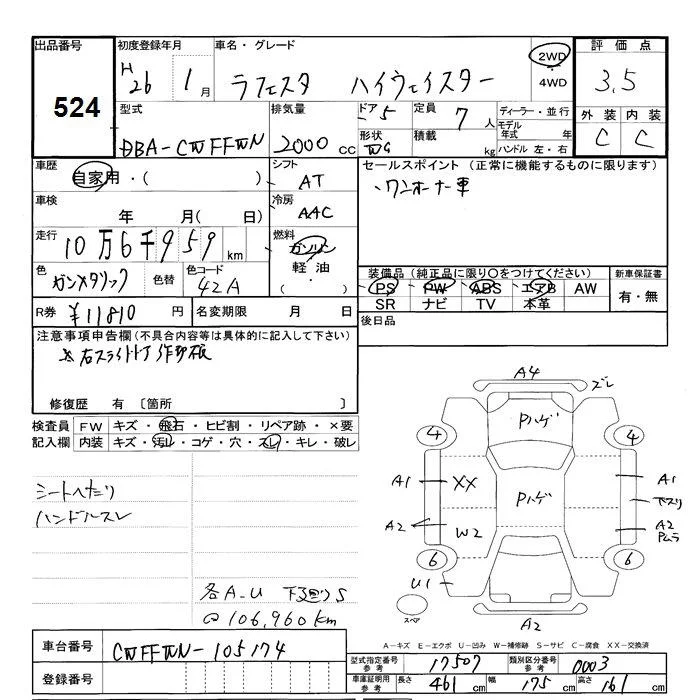 出品番号 初度登録年月 車名・グレード 評価点
524 H26 1月 ラフェスタ ハイウェイスター 2WD・4WD 3.5
外装 内装
C C
型式 排気量 ドア 5 定員 7人 ディーラー・並行
DBA-CWFFWN 2000cc 形状 WG 積載 kg モデル年式 年
ハンドル 左・右
車歴 自家用・( ) シフト AT セールスポイント(正常に機能するものに限ります)
車検 年 月( 日) 冷房 AAC ワンオーナー車
走行 10万6千959km 燃料 ガソリン
軽油・( )
色 ガンメタリック 色替 色コード 42A
装備品(純正品に限り○をつけてください) 新車保証書
PS PW ABS エアB AW 有・無
SR ナビ TV 本革
R券 ¥11810円 名変期限 月 日 後日品
注意事項申告欄(不具合内容等は具体的に記入して下さい)
右スライドドア
修復歴 有〔箇所 〕
検査員記入欄 FW キズ・飛石・ヒビ割・リペア跡・×要
内装 キズ・汚れ・コゲ・穴・スレ・キレ・破レ
シートへたり
ハンドルスレ
各A-U 下廻りS
@106,960km
A4 ズレ
Pハゲ
4 4
A1 XX Pハゲ A1
下スリ
A2 W2 A2
Pムラ
6 6
U1
スペア
A2
A-キズ E-エクボ U-凹み W-補修跡 S-サビ C-腐食 XX-交換済
車台番号 CWFFWN-105174
登録番号
型式指定番号 参考 17507 類別区分番号 参考 0003
車庫証明用 参考 長さ 461cm 幅 175cm 高さ 161cm